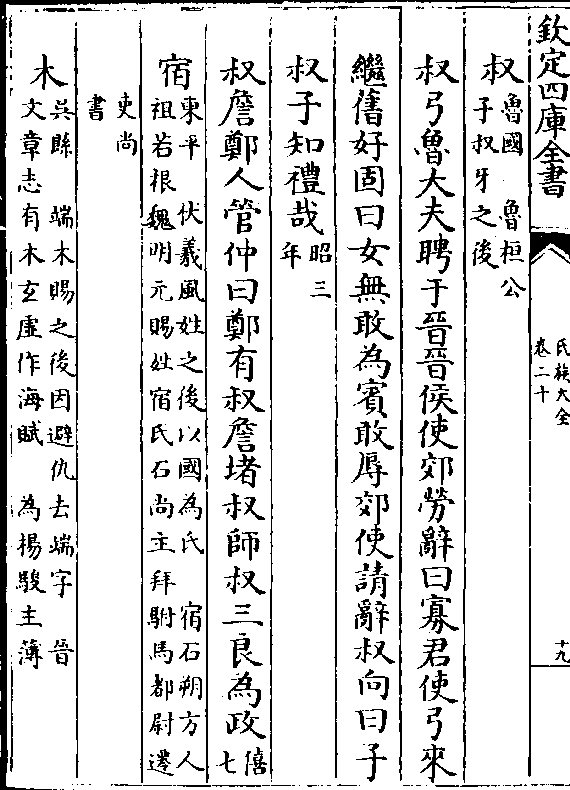 欽定四庫全書
氏族大全
卷二十
十九
叔魯國 魯桓公
子叔牙之後
叔弓魯大夫聘于晉晉侯使郊勞辭曰寡君使弓來
繼舊好固曰女無敢為賓敢辱郊使請辭叔向曰子
叔子知禮哉昭三
年
叔詹鄭人管仲曰鄭有叔詹堵叔師叔三良為政僖
七
宿東平 伏羲風姓之後以國為氏 宿石朔方人
祖若根魏明元賜姓宿氏石尚主拜駙馬都尉遷
吏尚
書
木吳縣 端木賜之後因避仇去端字 晉
文章志有木玄虛作海賦 為楊駿主薄